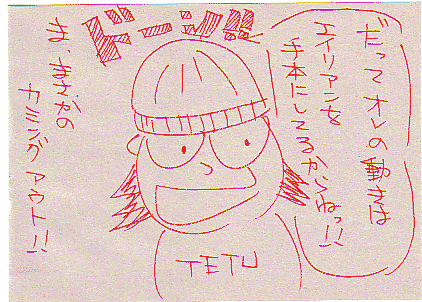 だってオレの動きは
エイリアンを
手本にしてるからねっ!!
ドーン!!
ま、まさかの
カミングアウト!!
TETU